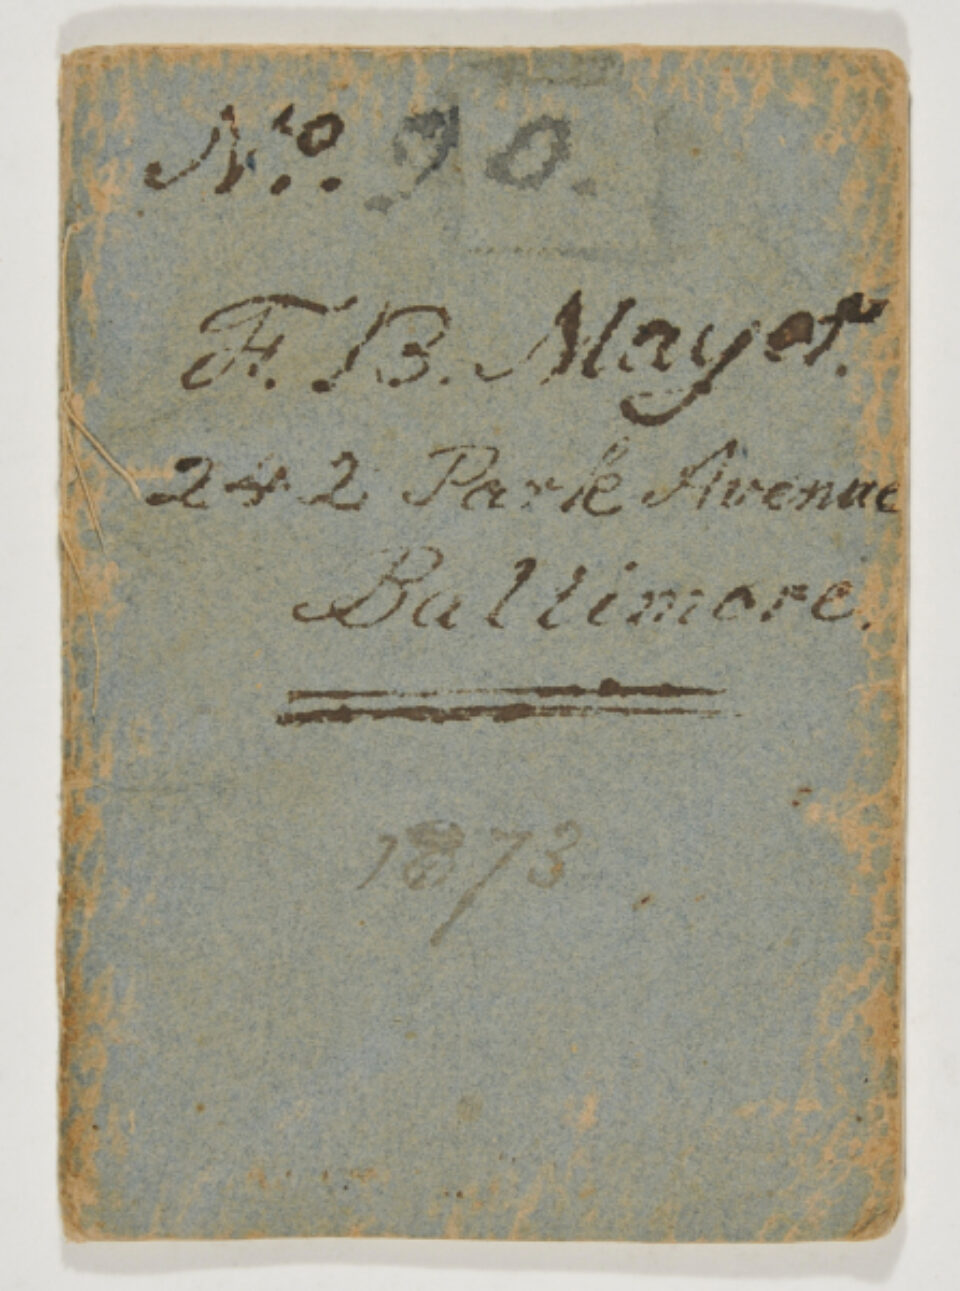 No. 90.
F. B. Mayer.
242 Park Avenue
Baltimore.
1873